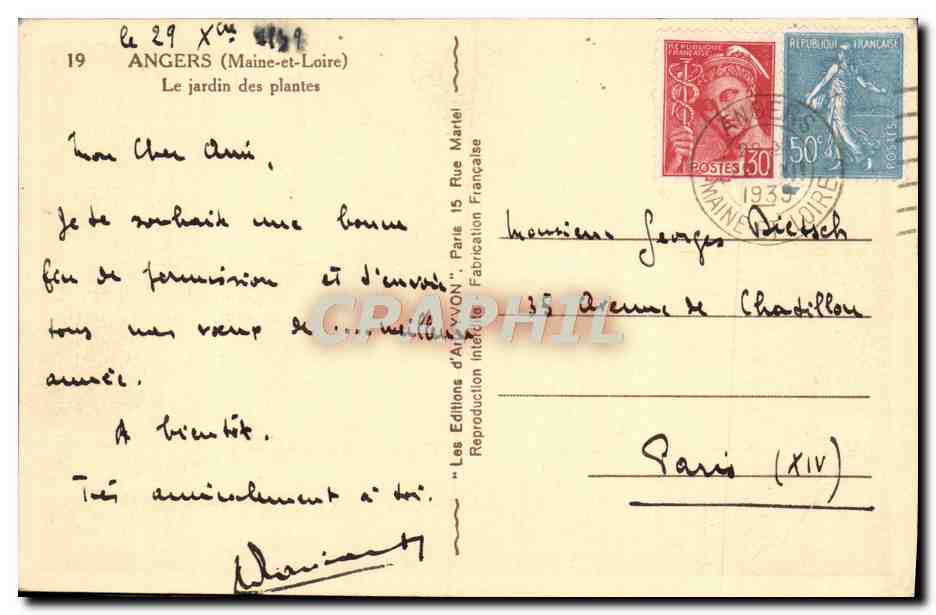 le 29 Xbre 1939
19 ANGERS (Maine-et-Loire)
Le jardin des plantes
Mon Cher Ami,
Je te souhaite une bonne
fin de permission et t'envoie
tous mes vœux de ... meilleure
année.
A bientôt.
Très amicalement à toi.
"Les Editions d'Art YVON". Paris 15 Rue Martel
Reproduction Interdite Fabrication Française
REPUBLIQUE FRANÇAISE
POSTES 30
REPUBLIQUE FRANÇAISE
50c POSTES
ANGERS
1939
MAINE LOIRE
Monsieur Georges Dietsch
35 Avenue de Chatillon
Paris (XIV)
CPAPHIL